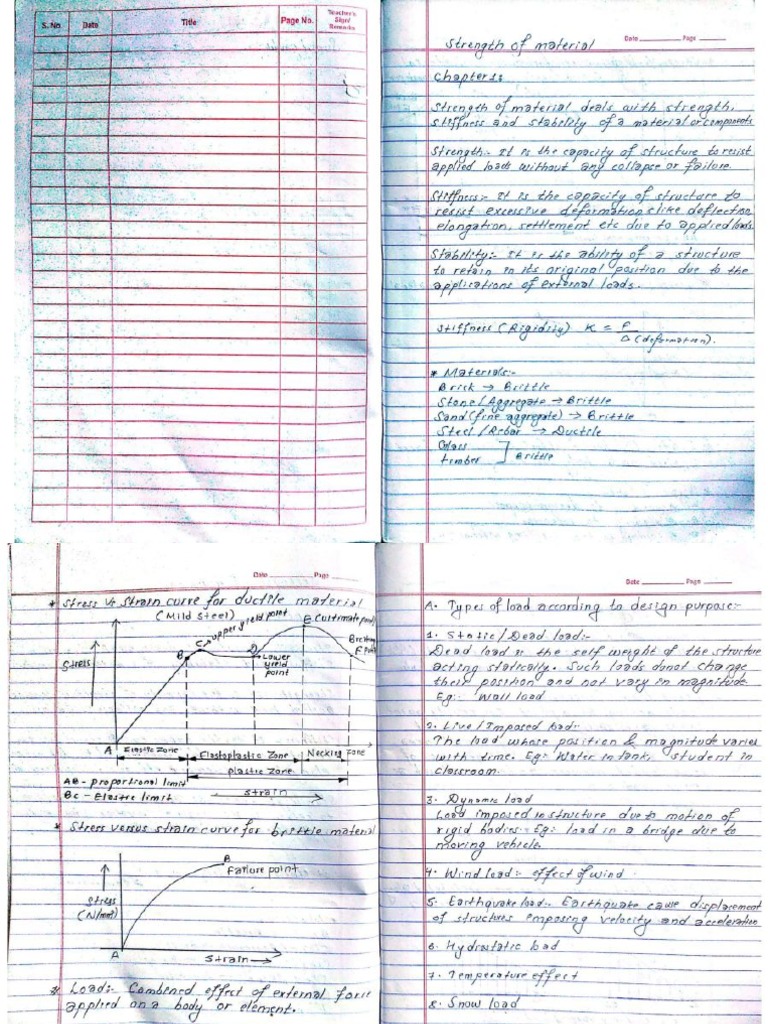 S.No
Date
Title
Page No.
Teacher's
Sign/
Remarks
Date Page
Strength of material
Chapter 1:
Strength of material deals with strength,
stiffness and stability of a material or components
Strength:- It is the capacity of structure to resist
applied loads without any collapse or failure.
Stiffness:- It is the capacity of structure to
resist excessive deformations like deflection,
elongation, settlement etc due to applied loads.
Stability:- It is the ability of a structure
to retain in its original position due to the
applications of external loads.
Stiffness (Rigidity) K = P
Δ (deformation).
* Materials:-
Brick → Brittle
Stone/Aggregate → Brittle
Sand (fine aggregate) → Brittle
Steel/Rebar → Ductile
Glass
timber
Brittle
Date Page
* Stress Vs Strain curve for ductile material
(Mild Steel)
E (ultimate point)
C → upper yield point
Breaking
F point
B
D
Lower
yield
point
Stress
A
Elastic Zone
Elastoplastic Zone
Necking Zone
plastic Zone
AB - proportional limit
BC - Elastic limit
strain
* Stress versus strain curve for brittle material
B
Failure point
Stress
(N/mm²)
A
strain →
* Load:- Combined effect of external force
applied on a body or element.
Date Page
A. Types of load according to design purpose:-
1. Static/Dead load:-
Dead load is the self weight of the structure
acting statically. Such loads donot change
their position and not vary in magnitude.
Eg:- Wall load
2. Live/Imposed load:-
The load whose position & magnitude varies
with time. Eg: Water in tank, student in
classroom.
3. Dynamic load
Load imposed in structure due to motion of
rigid bodies:- Eg: load in a bridge due to
moving vehicle.
4. Wind load:- effect of wind
5. Earthquake load:- Earthquake cause displacement
of structures imposing velocity and acceleration
6. Hydrostatic load
7. Temperature effect
8. Snow load